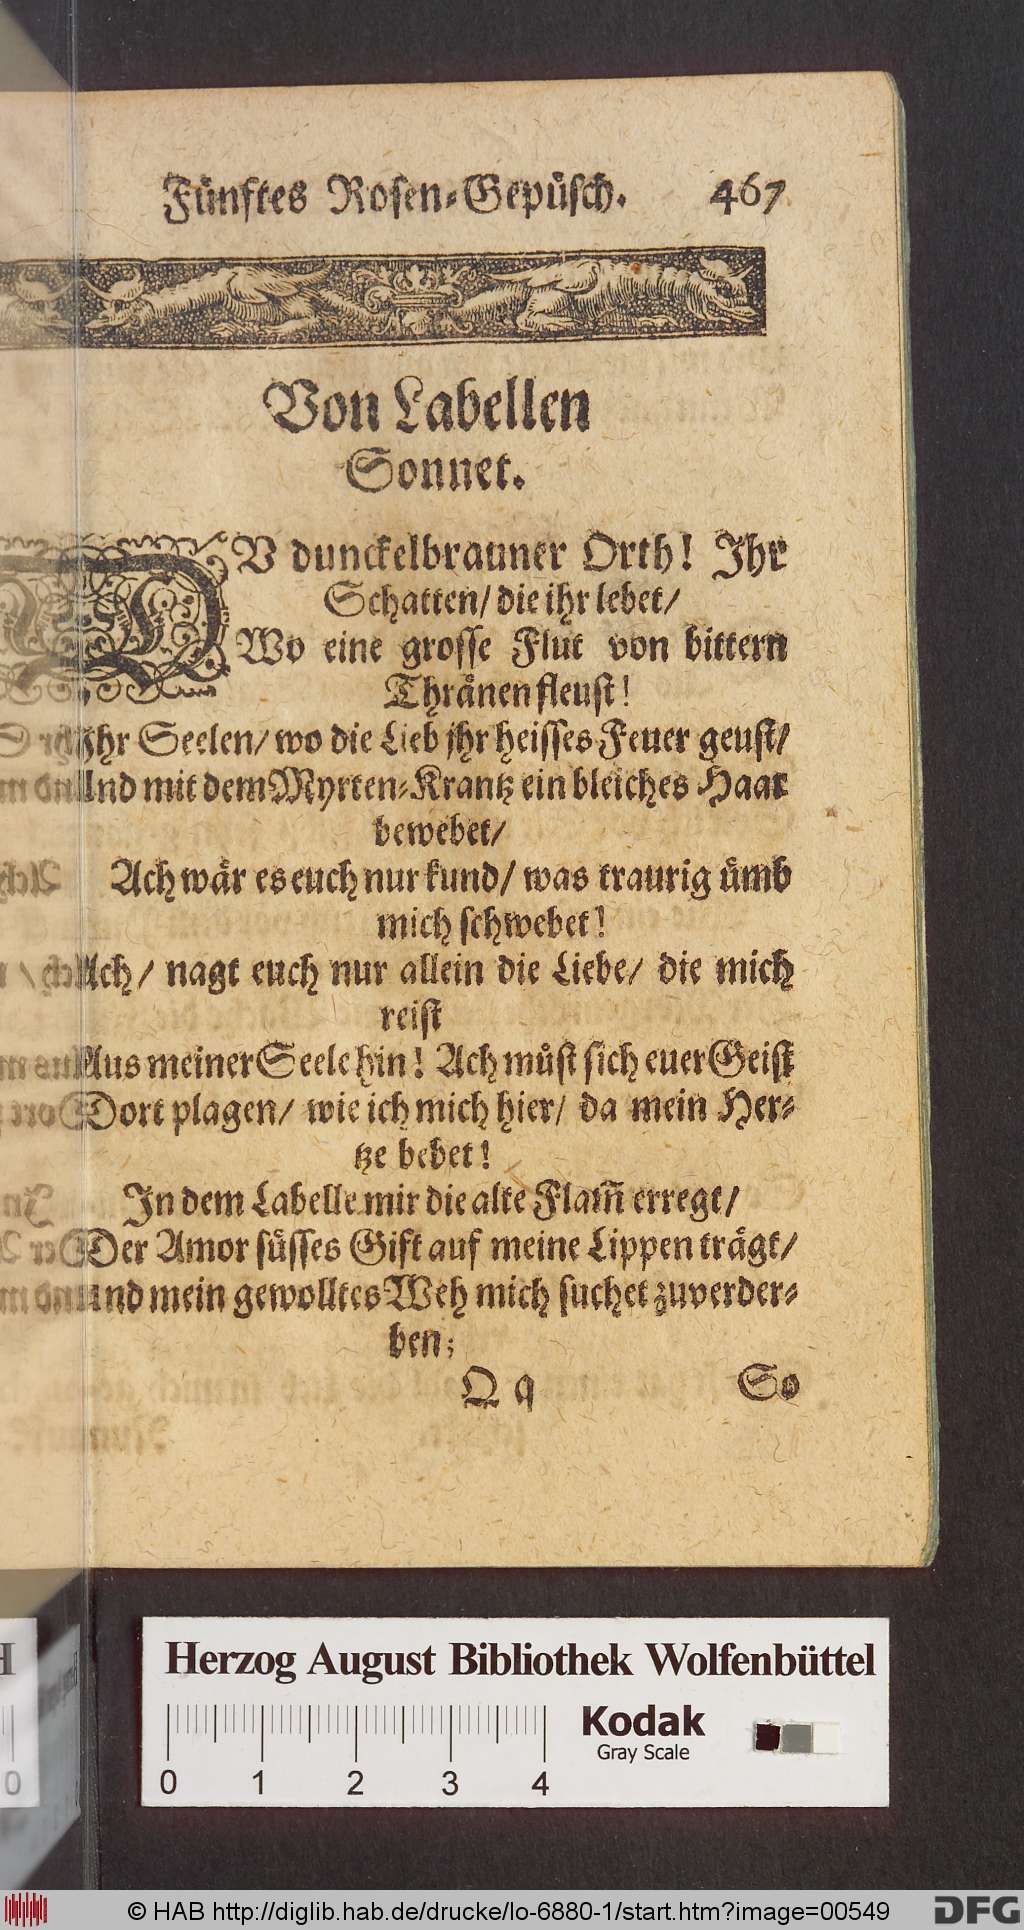 Fünftes Rosen-Gepüsch. 467
Von Labellen
Sonnet.
DV dunckelbrauner Orth! Ihr
Schatten/ die ihr lebet/
Wo eine grosse Flut von bittern
Thränen fleust!
Ihr Seelen/ wo die Lieb jhr heisses Feuer geust/
Und mit dem Myrten-Krantz ein bleiches Haar
bewebet/
Ach wär es euch nur kund/ was traurig ümb
mich schwebet!
Ach/ nagt euch nur allein die Liebe/ die mich
reist
Aus meiner Seele hin! Ach müst sich euer Geist
Dort plagen/ wie ich mich hier/ da mein Her-
tze bebet!
In dem Labelle mir die alte Flam̃ erregt/
Der Amor süsses Gift auf meine Lippen trägt/
und mein gewolltes Weh mich suchet zuverder-
ben;
Q q So
Herzog August Bibliothek Wolfenbüttel
Kodak
Gray Scale
0 1 2 3 4
© HAB http://diglib.hab.de/drucke/lo-6880-1/start.htm?image=00549
DFG